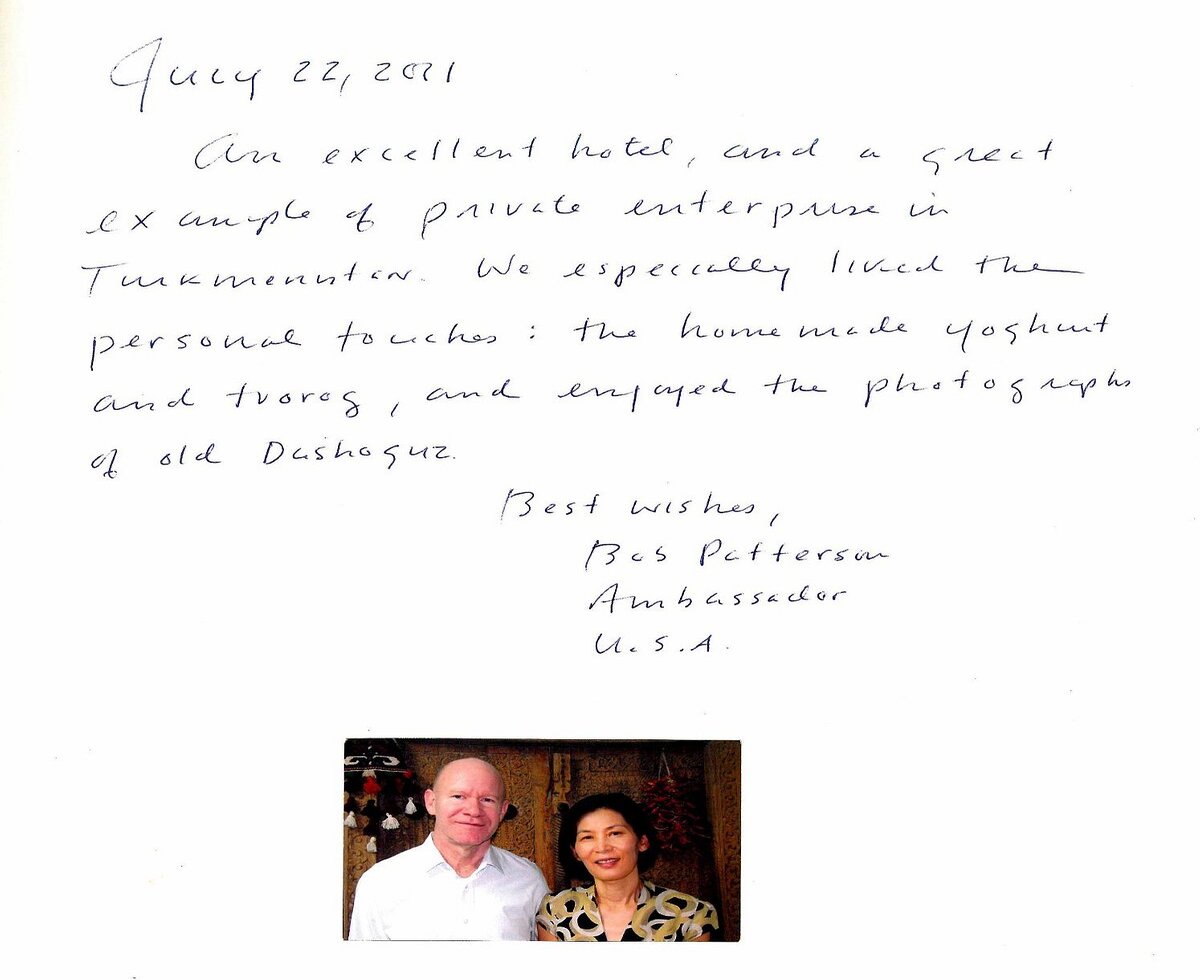 July 22, 2021
An excellent hotel, and a great
example of private enterprise in
Turkmenistan. We especially liked the
personal touches: the homemade yoghurt
and tvorog, and enjoyed the photographs
of old Dashoguz.
Best wishes,
Bob Patterson
Ambassador
U.S.A.